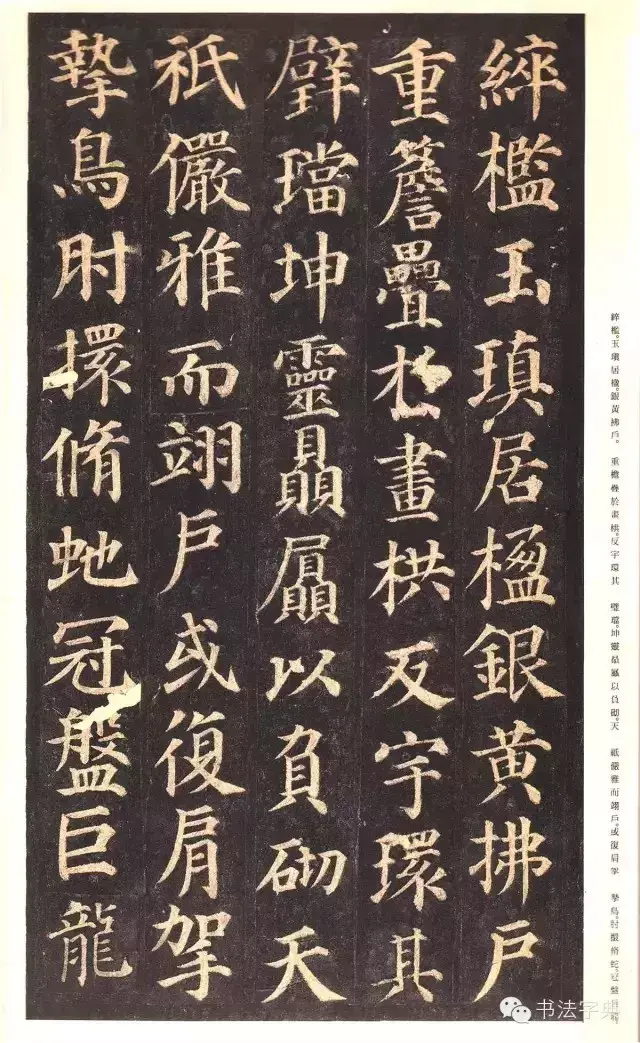 綷檻玉瑱居楹銀黃拂戶
重簷疊於畫栱反宇環其
壁璫坤靈贔屭以負砌天
祇儼雅而翊戶或復肩挐
摯鳥肘擐脩虵冠盤巨龍
綷檻。玉瑱居楹。銀黃拂戶。 重檐疊於畫栱。反宇環其 壁璫。坤靈贔屭以負砌。天 祇儼雅而翊戶。或復肩挐 摯鳥。肘擐脩蛇。冠盤巨龍
书法字典